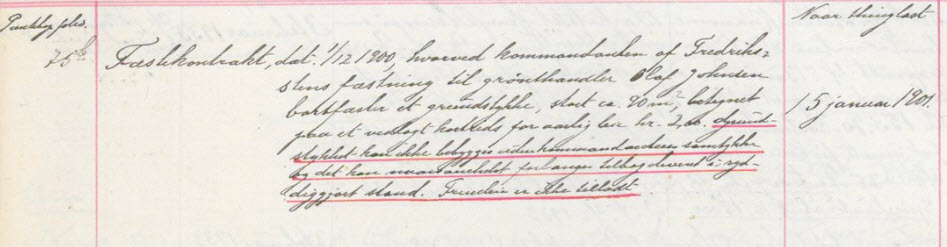 Panteb. folio.
Naar thinglæst
75b
Fæstekontrakt, dat. 1/12 1900, hvorved kommandanten af Fredriks-
stens fæstning til grønthandler Olaf Johnsen
bortfæster et grundstykke, stort ca. 90 m², betegnet
paa et vedlagt kartrids for aarlig leie kr. 2,00. Grund-
stykket kan ikke bebygges uden kommandantens samtykke
og det kan naarsomhelst forlanges tilbageleveret i ryd-
diggjort stand. Fremleie er ikke tilladt.
15 januar 1901.